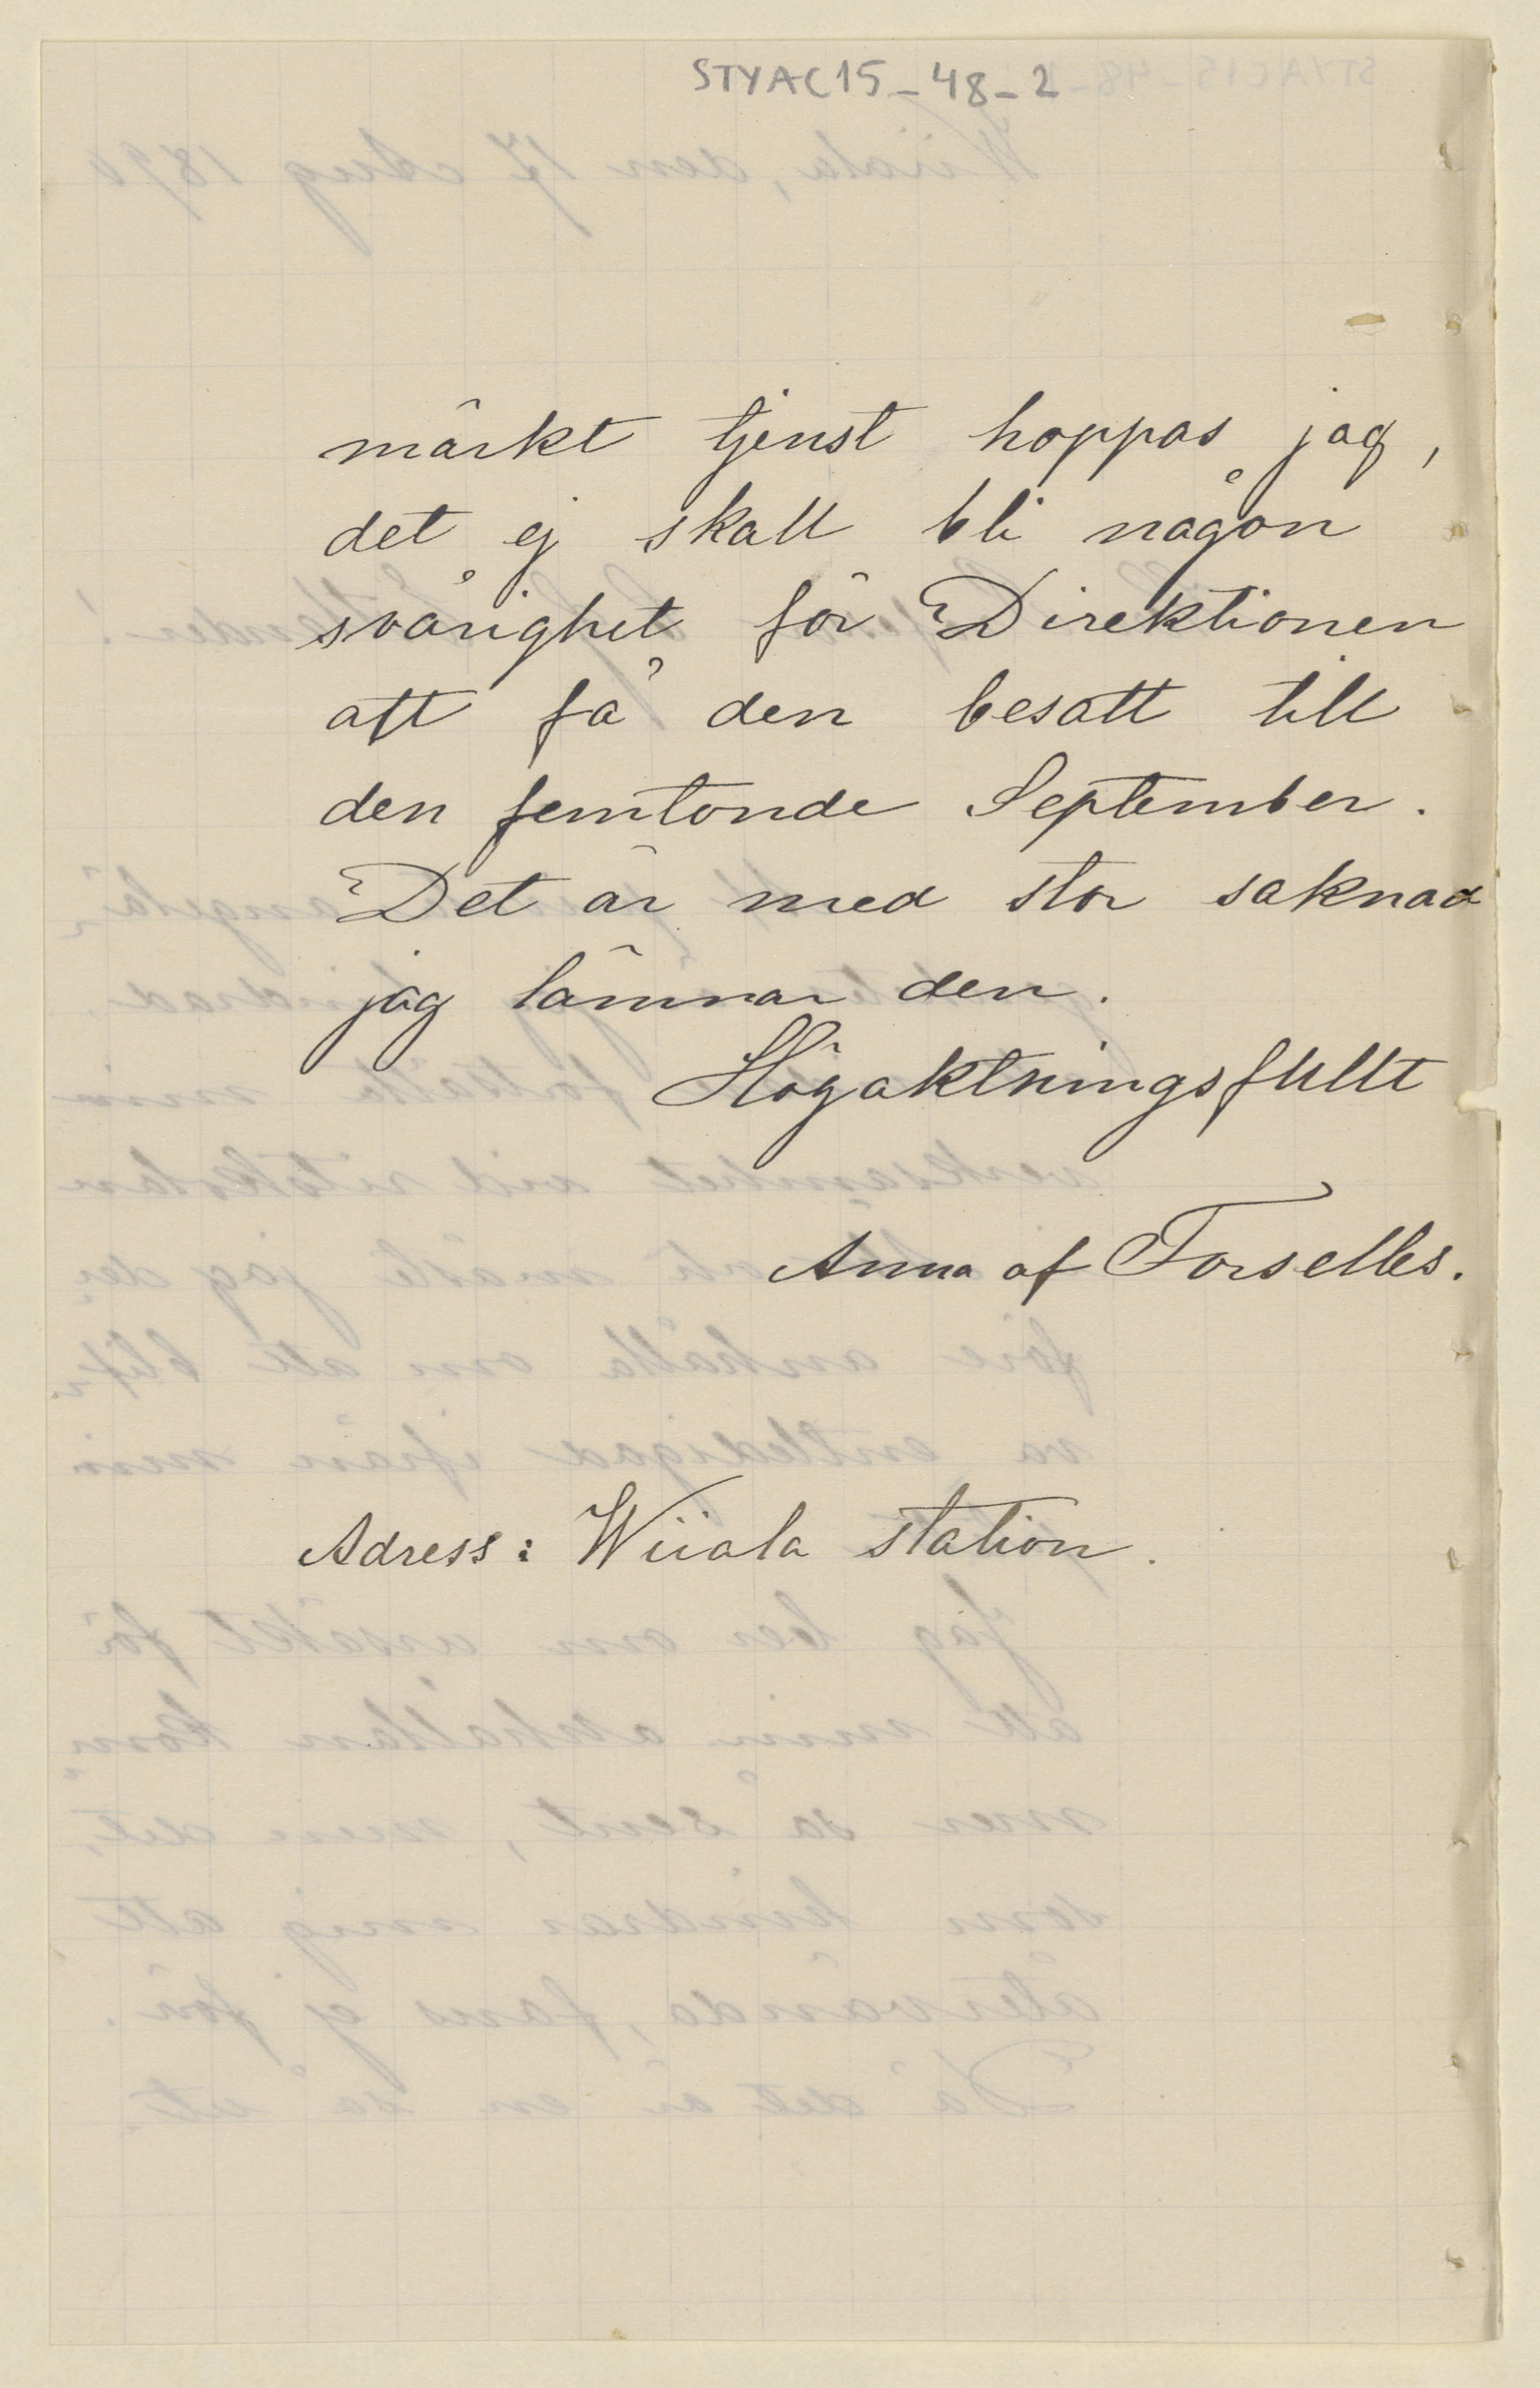 STYAC15-48-2
märkt tjenst hoppas jag,
det ej skall bli någon
svårighet för Direktionen
att få den besatt till
den femtonde September.
Det är med stor saknad
jag lämnar den.
Högaktningsfullt
Anna af Forselles.
Adress: Wiiala station.